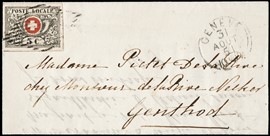 POSTE LOCALE
GENÈVE
31
Madame Pictet De la Rive
chez Monsieur de la Rive Necker
Genthod